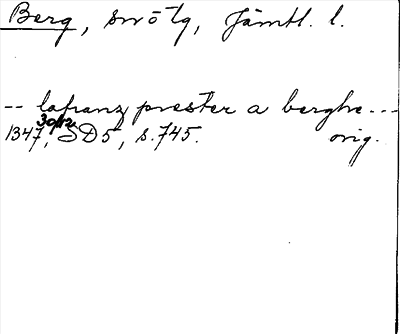 Berg, snötg, Jämtl. l.
-- lafranz prester a berghe ---
1347 30/12, SD5, s. 745. orig.